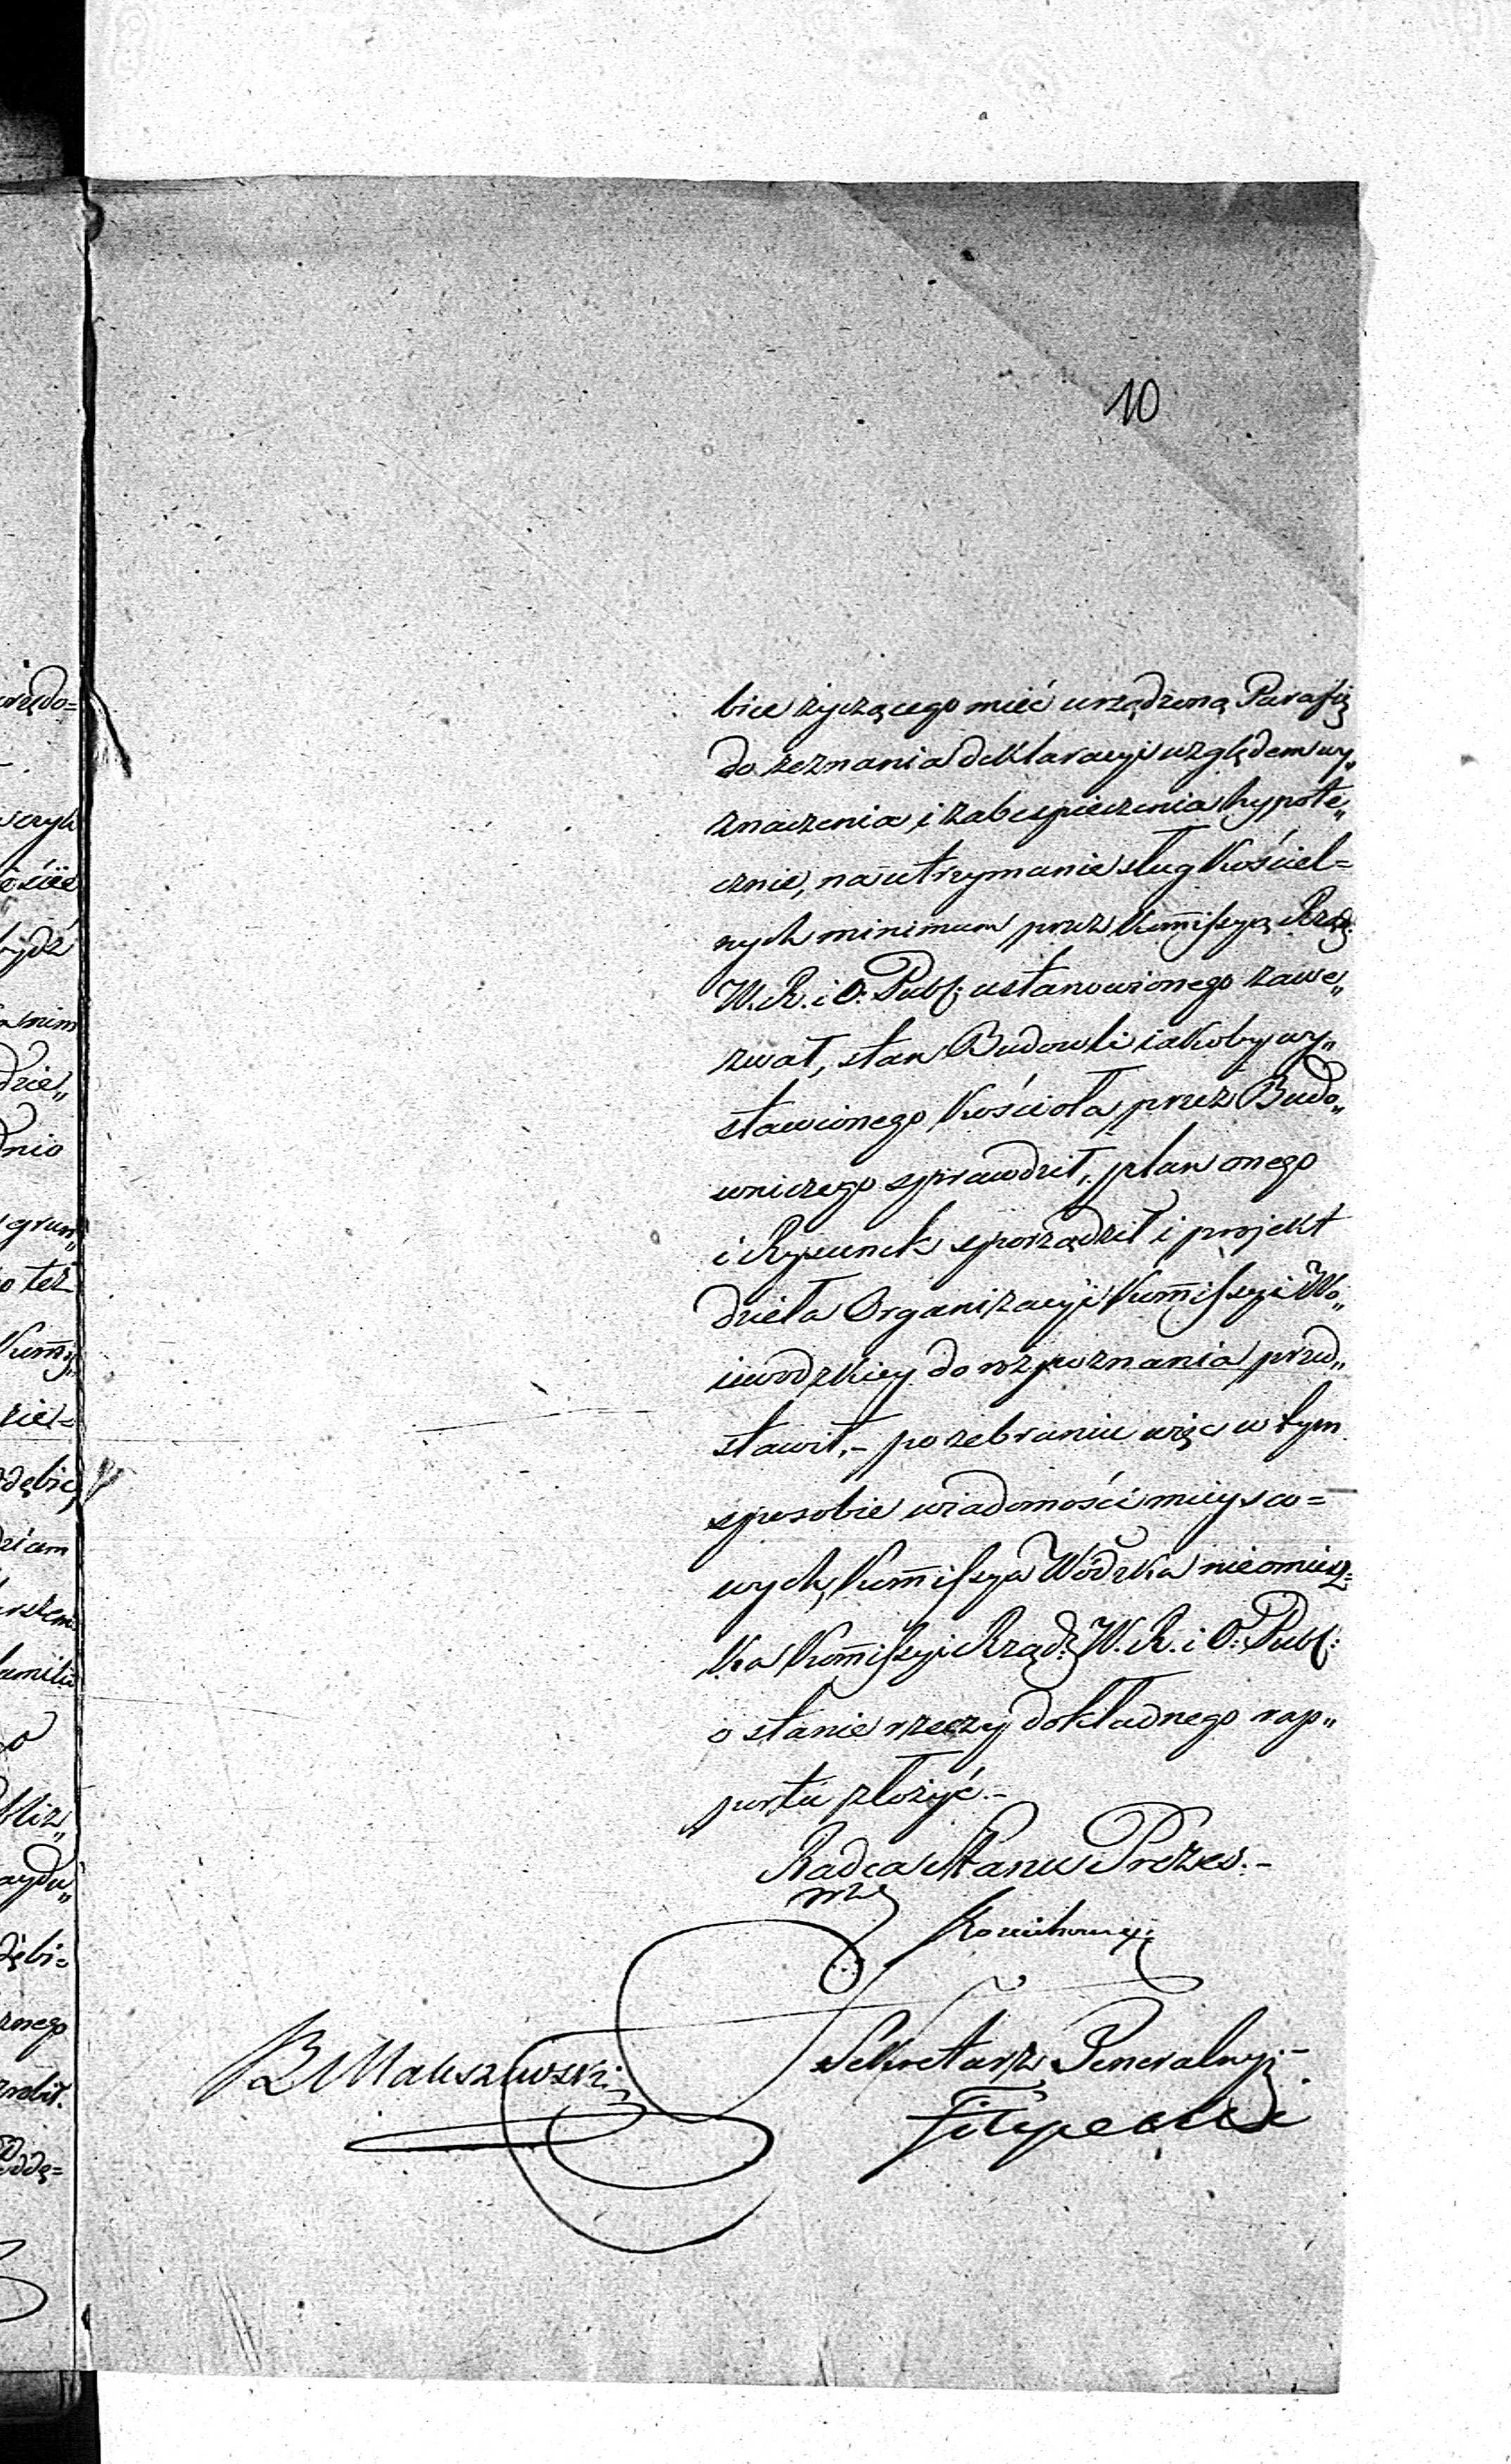 10
bie życzącego mieć urządzoną Parafią
do zeznania deklaracyi względem wy„
znaczenia i zabespieczenia hypote„
cznie, na utrzymanie sług Kościel=
nych minimum przez Kom̅issyą Rząd:
W. R. i O: Publ: ustanowionego zawe„
zwał, stan Budowli iakoby wy„
stawionego Kościoła przez Budo„
wniczego sprawdził, plan onego
i Rysunek sporządził i projekt
dzieła Organizacyi Kom̅issyi Wo„
iewodzkiey do rozpoznania przed„
stawił, - po zebraniu więc w tym
sposobie wiadomości mieysco=
wych, Kom̅issya Wódzka nieomiesz=
ka Kom̅issyi Rząd: W. R. i O: Publ:
o stanie rzeczy dokładnego rap„
portu złożyć.-
Radca Stanu Prezes.-
Sekretarz Generalny
Filipecki
B Maluszewski
wrzędo=
bydź
nim
dzie„
dnio
grun„
o też
Kom̅i„
ziel=
dębie
dębi=
znego
zrobił.